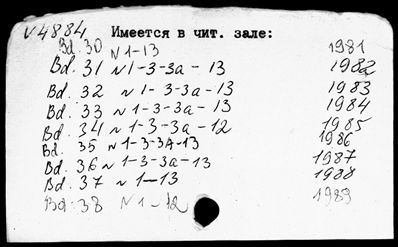 V4884
Имеется в чит. зале:
Bd. 30 N 1-13 1981
Bd. 31 N 1-3-3a-13 1982
Bd. 32 N 1-3-3a-13 1983
Bd. 33 N 1-3-3a-13 1984
Bd. 34 N 1-3-3a-12 1985
Bd. 35 N 1-3-3A-13 1986
Bd. 36 N 1-3-3a-13 1987
Bd. 37 N 1-13 1988
Bd. 38 N 1-12 1989